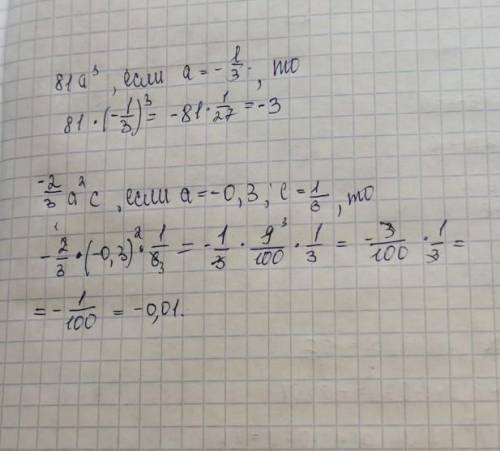 81a³, если a = -1/3, то
81·(-1/3)³ = -81·1/27 = -3
-2/3 a²c, если a = -0,3; c = 1/3, то
-2/3·(-0,3)²·1/6 = -1/3·9/100·1/3 = -3/100·1/3 =
= -1/100 = -0,01.